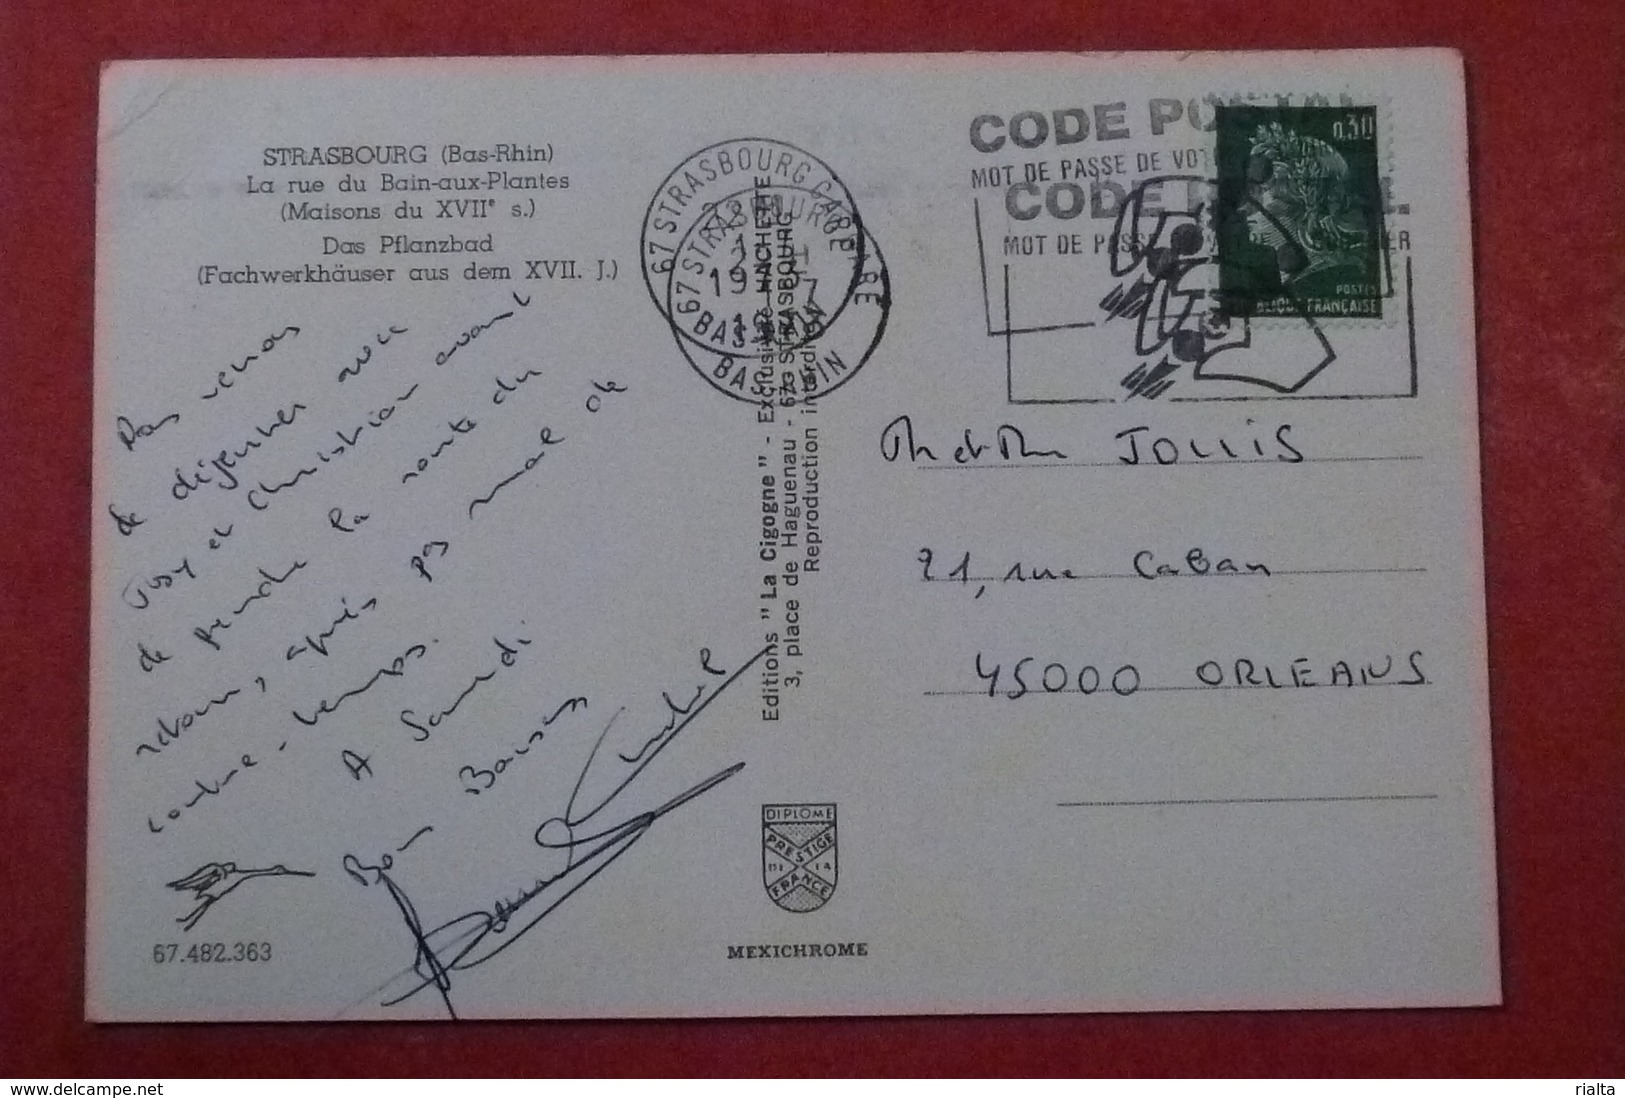 STRASBOURG (Bas-Rhin)
La rue du Bain-aux-Plantes
(Maisons du XVIIe s.)
Das Pflanzbad
(Fachwerkhäuser aus dem XVII. J.)
venons
de déjeuner avec
et Christian avant
de prendre la route du
retour, après pas mal de
contre-temps.
A Samedi.
Bons Baisers
67.482.363
67 STRASBOURG GARE
BAS RHIN
67 STRASBOURG GARE
BAS RHIN
Editions "La Cigogne" - Exclusivité HACHETTE
3, place de Haguenau - 67 - STRASBOURG
Reproduction interdite
DIPLOME
PRESTIGE
DE LA
FRANCE
MEXICHROME
CODE POSTAL
MOT DE PASSE DE VOTRE
CODE POSTAL
MOT DE PASSE DE VOTRE COURRIER
0,30
POSTES
REPUBLIQUE FRANÇAISE
et JOLLIS
21, rue Caban
45000 ORLEANS
delcampe.net
rialta